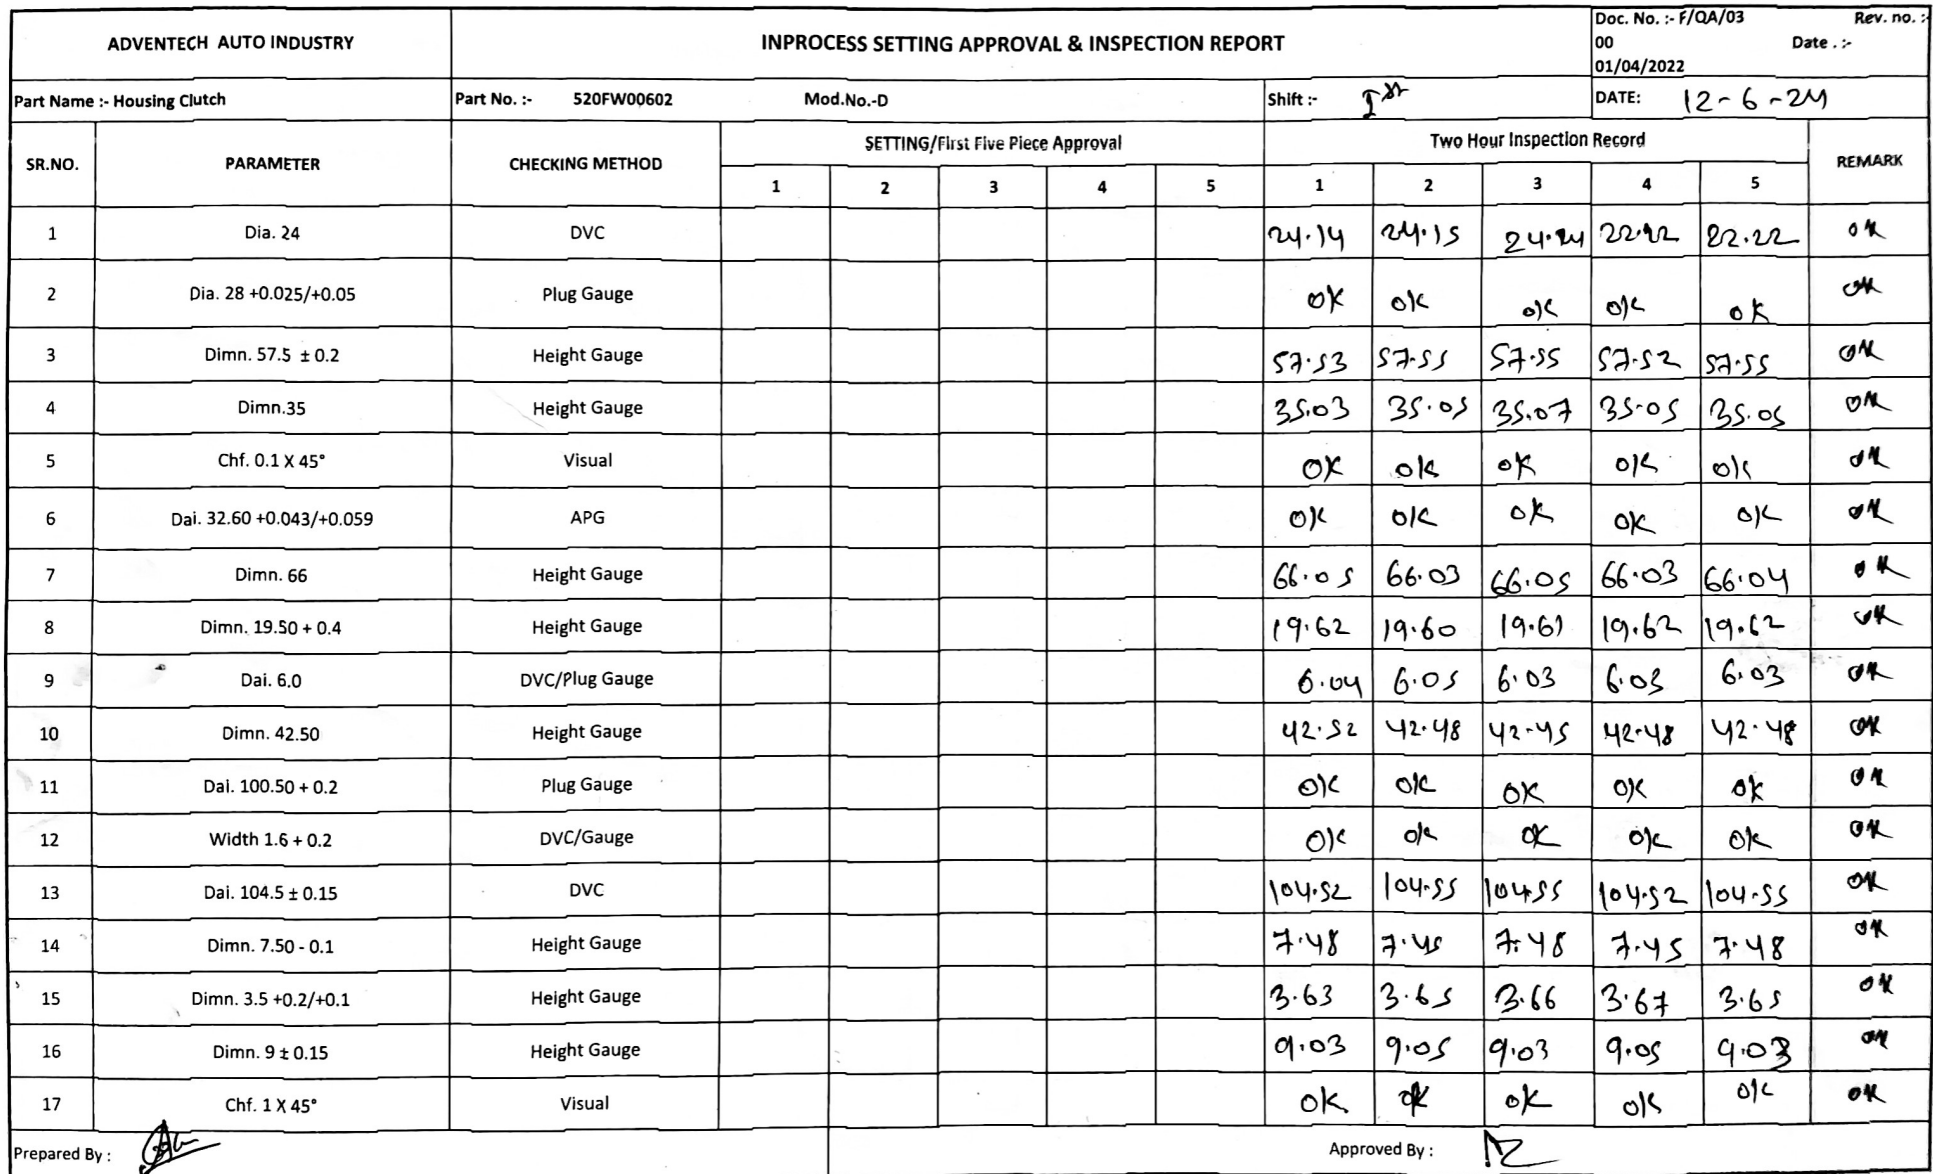 ADVENTECH AUTO INDUSTRY INPROCESS SETTING APPROVAL & INSPECTION REPORT Doc. No. :- F/QA/03 Rev. no. :-
00 Date . :-
01/04/2022
Part Name :- Housing Clutch Part No. :- 520FW00602 Mod.No.-D Shift :- Ist DATE: 12-6-24
SR.NO. PARAMETER CHECKING METHOD SETTING/First Five Piece Approval Two Hour Inspection Record REMARK
1 2 3 4 5 1 2 3 4 5
1 Dia. 24 DVC 24.14 24.15 24.24 22.22 22.22 OK
2 Dia. 28 +0.025/+0.05 Plug Gauge OK OK OK OK OK OK
3 Dimn. 57.5 ± 0.2 Height Gauge 57.53 57.55 57.55 57.52 57.55 OK
4 Dimn.35 Height Gauge 35.03 35.05 35.07 35.05 35.05 OK
5 Chf. 0.1 X 45° Visual OK OK OK OK OK OK
6 Dai. 32.60 +0.043/+0.059 APG OK OK OK OK OK OK
7 Dimn. 66 Height Gauge 66.05 66.03 66.05 66.03 66.04 OK
8 Dimn. 19.50 + 0.4 Height Gauge 19.62 19.60 19.61 19.62 19.62 OK
9 Dai. 6.0 DVC/Plug Gauge 6.04 6.05 6.03 6.03 6.03 OK
10 Dimn. 42.50 Height Gauge 42.52 42.48 42.45 42.48 42.48 OK
11 Dai. 100.50 + 0.2 Plug Gauge OK OK OK OK OK OK
12 Width 1.6 + 0.2 DVC/Gauge OK OK OK OK OK OK
13 Dai. 104.5 ± 0.15 DVC 104.52 104.55 104.55 104.52 104.55 OK
14 Dimn. 7.50 - 0.1 Height Gauge 7.48 7.45 7.48 7.45 7.48 OK
15 Dimn. 3.5 +0.2/+0.1 Height Gauge 3.63 3.65 3.66 3.67 3.65 OK
16 Dimn. 9 ± 0.15 Height Gauge 9.03 9.05 9.03 9.05 9.03 OK
17 Chf. 1 X 45° Visual OK OK OK OK OK OK
Prepared By : Approved By :